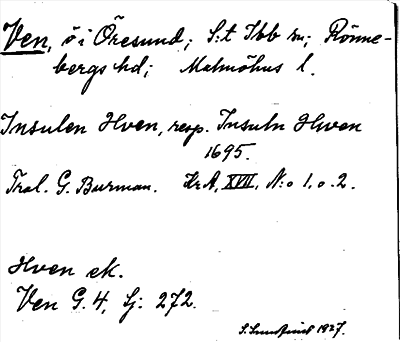 Ven, ö i Öresund; S:t Ibb sn; Rönne-
bergs hd; Malmöhus l.
Insulen Hven, resp. Insuln Hwen
1695.
Trol. G. Burman. KrA, XVII, N:o 1, o. 2.
Hven ek.
Ven G. 4, Lj: 272.
1927.